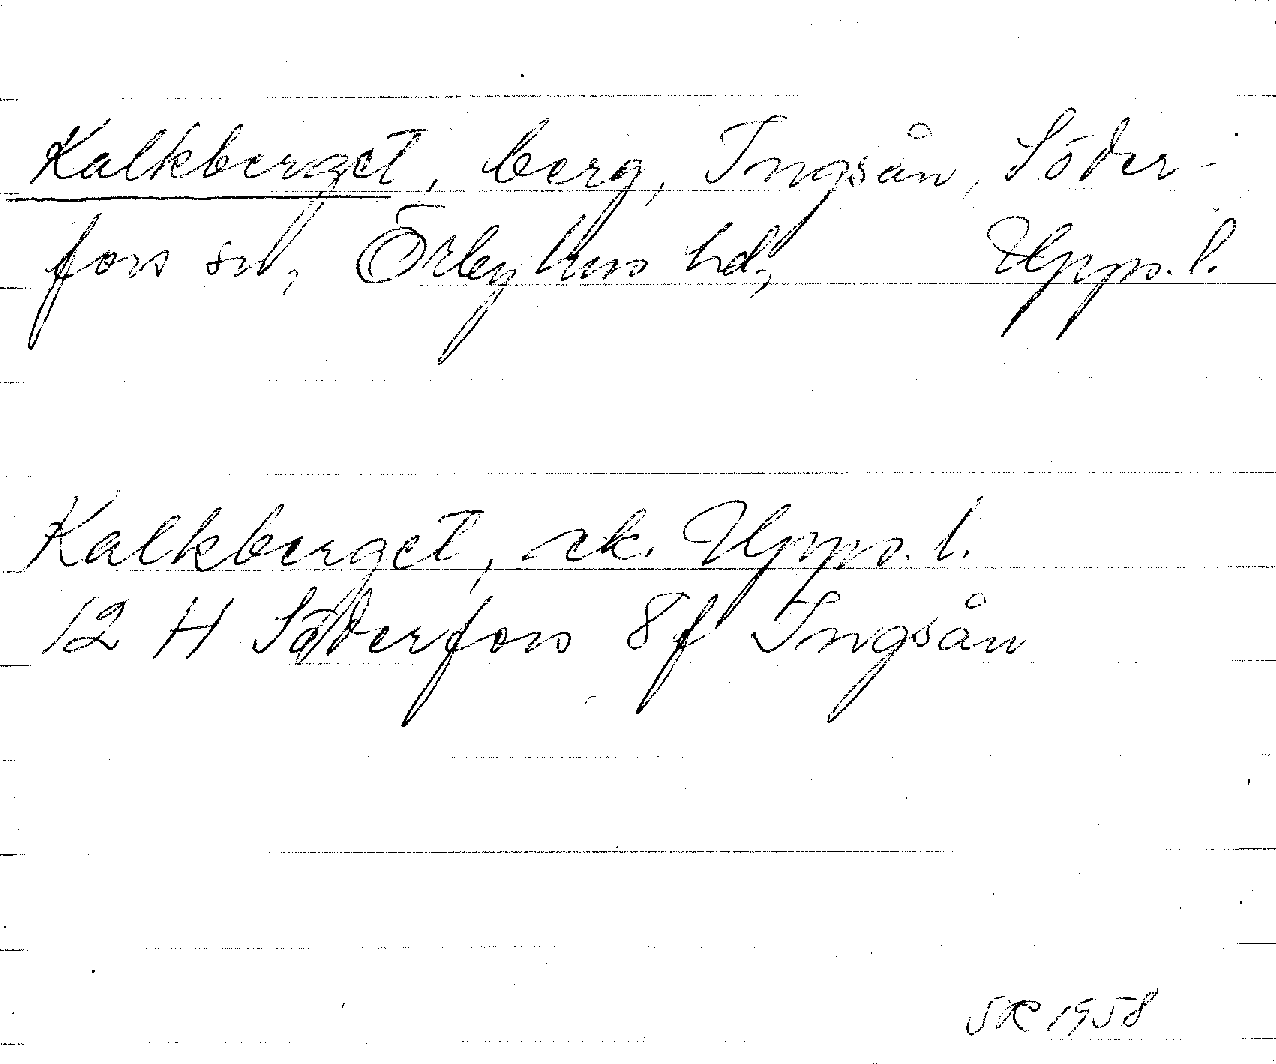 Kalkberget, berg, Ingsån, Söder-
fors sn, Örbyhus hd, Upps. l.
Kalkberget, ek. Upps. l.
12 H Söderfors 8f Ingsån
SR 1958